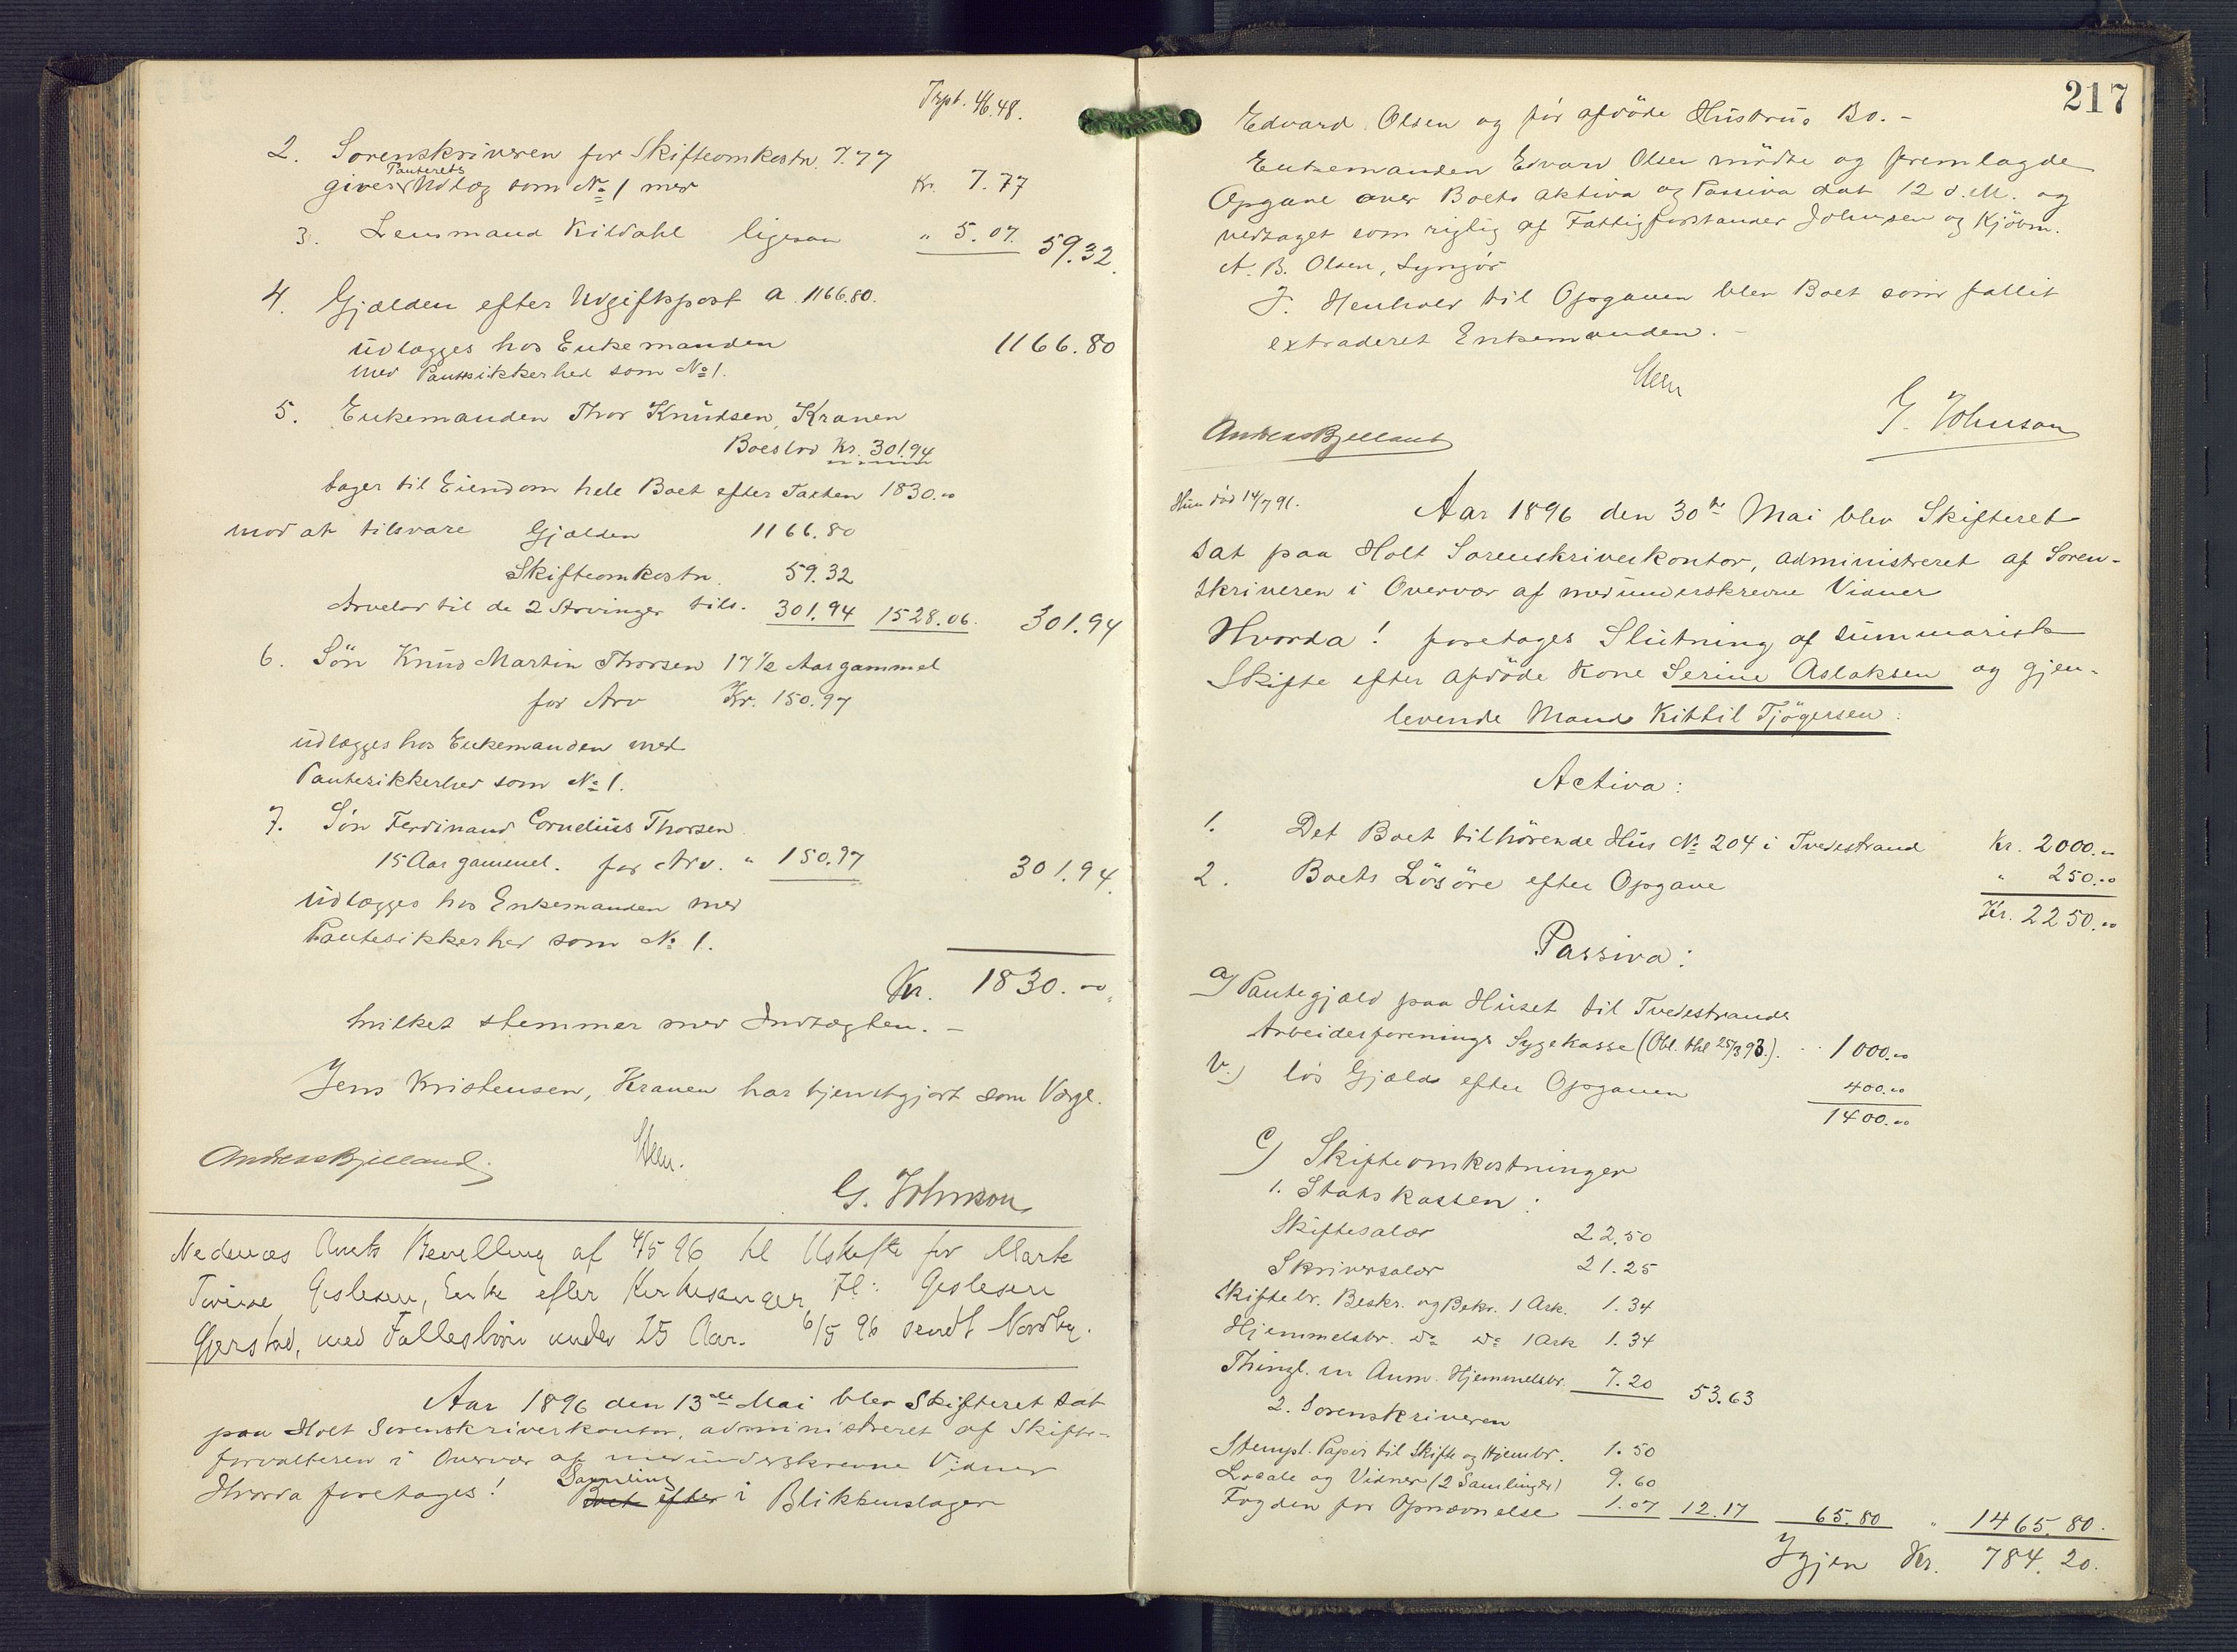 Trpt. 46.48.
2. Sorenskriveren for Skifteomkostn. 7.77
Panterets
gives Udlæg som No 1 med Kr. 7.77
3. Lensmand Kildahl ligesaa " 5.07. 59.32.
4. Gjælden efter Udgiftspost a. 1166.80.
udlægges hos Enkemanden 1166.80
med Pantesikkerhed som No 1.
5. Enkemanden Thor Knudsen, Kranen
Boeslod Kr. 301.94
tager til Eiendom hele Boet efter Taxten 1830.00
mod at tilsvare Gjælden 1166.80
Skifteomkostn. 59.32
Arvelod til de 2 Arvinger tils. 301.94 1528.06. 301.94
6. Søn Knud Martin Thorsen 17 1/2 Aar gammel
for Arv Kr. 150.97
udlægges hos Enkemanden med
Pantesikkerhed som No 1.
7. Søn Ferdinand Cornelius Thorsen
15 Aar gammel. for Arv. " 150.97 301.94.
udlægges hos Enkemanden med
Pantesikkerhed som No 1.
Kr. 1830.00
hvilket stemmer med Indtægten. –
Jens Kristensen, Kranen har tjenstgjort som Værge.
Andreas Bjelland. Steen.
G. Johnson
Nedenæs Amts Bevilling af 4/5 96 til Uskifte for Marte
Gislesen, Enke efter Kirkesanger Gislesen
Gjerstad, med Fællesbørn under 25 Aar. 6/5 96 sendt Nordby.
Aar 1896 den 13de Mai blev Skifteret sat
paa Holt Sorenskriverkontor, administreret af Skifte-
forvalteren i Overvær af medunderskrevne Vidner
Samling
Hvorda foretages! Boet efter i Blikkenslager
217
Edvard Olsen og før afdøde Hustrus Bo. –
Enkemanden Edvard Olsen mødte og fremlagde
Opgave over Boets Aktiva og Passiva dat 12 d.M. og
vedtaget som rigtig af Fattigforstander Johnsen og Kjøbm.
A. B. Olsen, Lyngør
I Henhold til Opgaven blev Boet som fallit
extraderet Enkemanden. –
Steen
Andreas Bjelland G. Johnson
Hun død 14/7 91.
Aar 1896 den 30te Mai blev Skifteret
sat paa Holt Sorenskriverkontor, administreret af Soren-
skriveren i Overvær af medunderskrevne Vidner
Hvorda! foretages Slutning af summarisk
Skifte efter afdøde Kone Serine Aslaksen og gjen-
levende Mand Kittil Tjøgersen:
Activa:
1. Det Boet tilhørende Hus No 204 i Tvedestrand Kr. 2000.00
2. Boets Løsøre efter Opgave " 250.00
Kr. 2250.00
Passiva:
a) Pantegjæld paa Huset til Tvedestrands
Arbeiderforenings Sygekasse (Obl. thl 25/3 93.). 1000.00
b.) løs Gjæld efter Opgaven 400.00
1400.00
c) Skifteomkostninger
1. Statskassen:
Skiftesalær 22.50
Skriversalær 21.25
Skiftebr. Beskr. og Bekr. 1 Ark. 1.34
Hjemmelsbr. do do 1 Ark 1.34
Thingl. m Anm. Hjemmelsbr. 7.20 53.63
2. Sorenskriveren
Stempl. Papir til Skifte og Hjembr. 1.50
Locale og Vidner (2 Samlinger) 9.60
Fogden for Opnævnelse 1.07 12.17 65.80 " 1465.80.
Igjen Kr. 784.20.